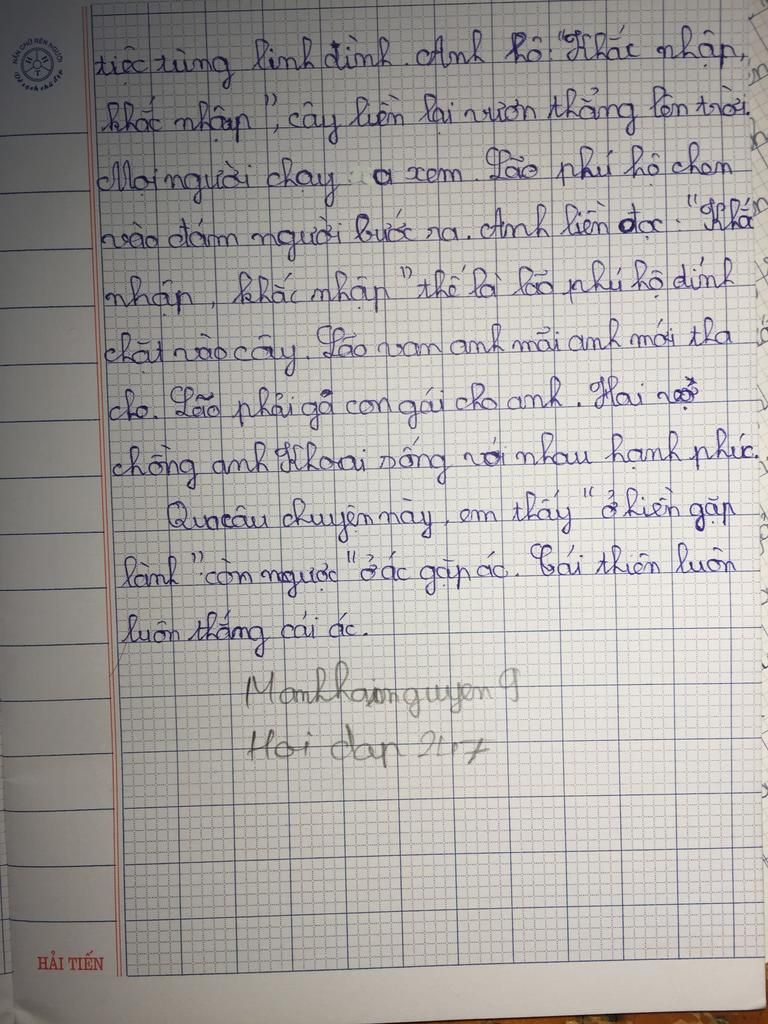 NẮN CHỮ RÈN NGƯỜI
tiệc tùng linh đình. Anh hô: "Khắc nhập,
khắc nhập", cây liền lại vươn thẳng lên trời.
Mọi người chạy a xem. Lão phú hộ cham
vào đám người bước ra. Anh liền đọc: "Khắ
nhập, khắc nhập" thế là lão phú hộ dính
chặt vào cây. Lão van anh mãi anh mới tha
cho. Lão phải gả con gái cho anh. Hai vợ
chồng anh Khoai sống với nhau hạnh phúc.
Qua câu chuyện này, em thấy "ở hiền gặp
lành" còn ngược "ở ác gặp ác. Cái thiện luôn
luôn thắng cái ác.
Manhhainguyen9
Hoi dap 247
HẢI TIẾN